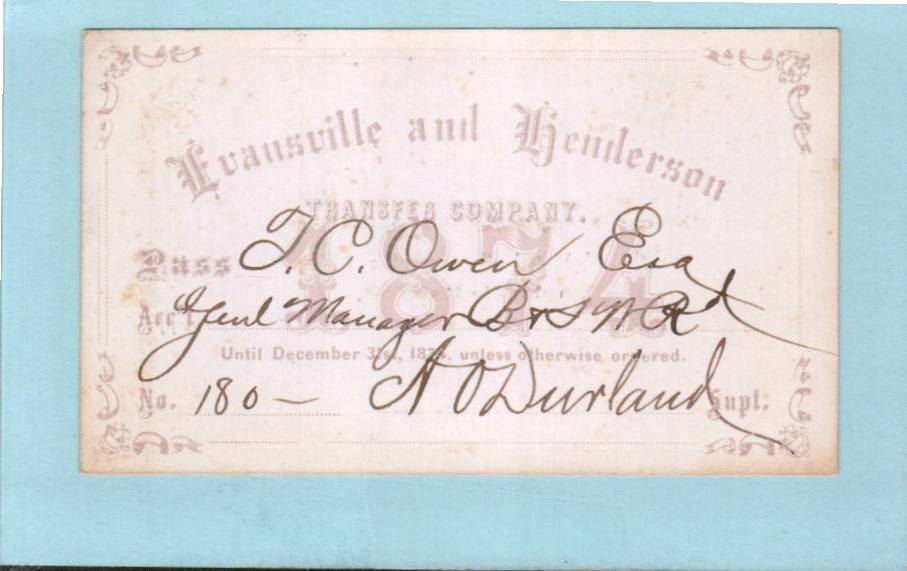 Evansville and Henderson
TRANSFER COMPANY.
1874
Pass T. C. Owen Esq
Acc't Genl Manager B & S W Rd
Until December 31st, 1874, unless otherwise ordered.
No. 180 — A O Durland Supt.